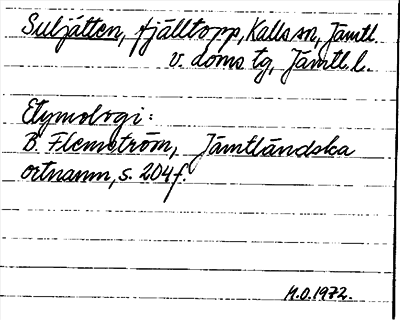 Suljätten, fjälltopp, Kalls sn, Jämtl.
v. doms tg, Jämtl. l.
Etymologi:
B. Flemström, Jämtländska
ortnamn, s. 204 f.
H.O. 1972.